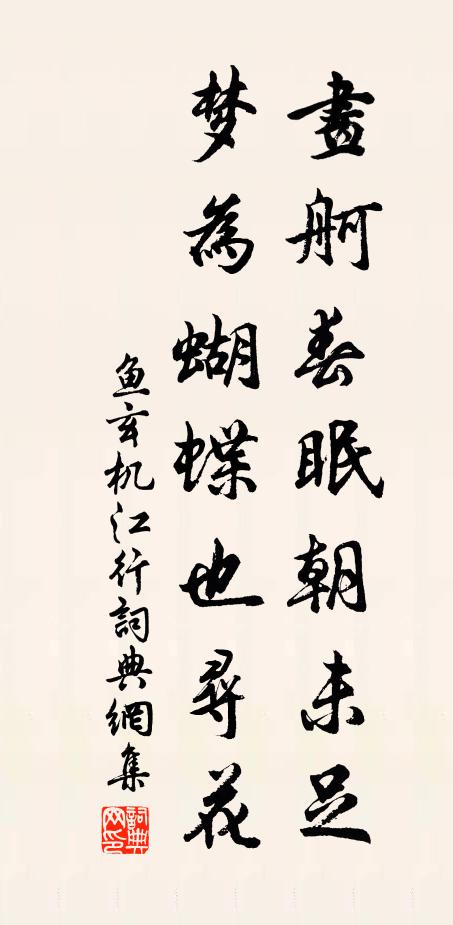 畫舸春眠朝未足
梦為蝴蝶也尋花
鱼玄机江行詞典網集
詞典網印